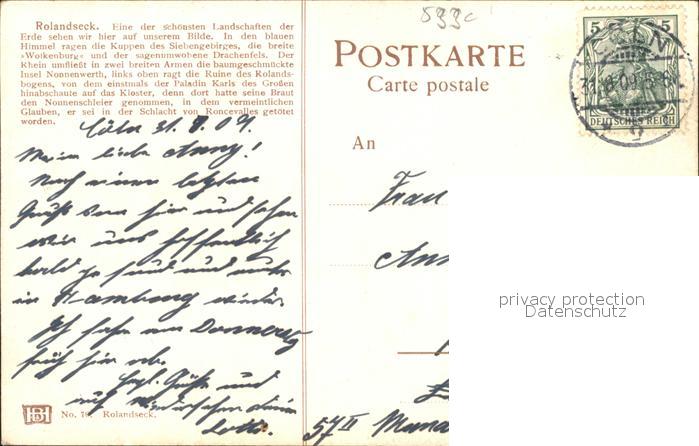 Rolandseck. Eine der schönsten Landschaften der
Erde sehen wir hier auf unserem Bilde. In den blauen
Himmel ragen die Kuppen des Siebengebirges, die breite
»Wolkenburg« und der sagenumwobene Drachenfels. Der
Rhein umfließt in zwei breiten Armen die baumgeschmückte
Insel Nonnenwerth, links oben ragt die Ruine des Rolands-
bogens, von dem einstmals der Paladin Karls des Großen
hinabschaute auf das Kloster, denn dort hatte seine Braut
den Nonnenschleier genommen, in dem vermeintlichen
Glauben, er sei in der Schlacht von Roncevalles getötet
worden.
Cöln 31. 8. 09.
Meine liebe Anny!
Noch einen letzten
Gruß von hier und sehen
wir uns hoffentlich
bald gesund und
in Hamburg wieder
Ich fahre am Donnerstg
früh hier ab.
Hrzl. Grüße und
auf Wiedersehen deine
Lotte.
No. Rolandseck.
533c
POSTKARTE
Carte postale
5 5
DEUTSCHES REICH
An
Frau
57 II
privacy protection
Datenschutz